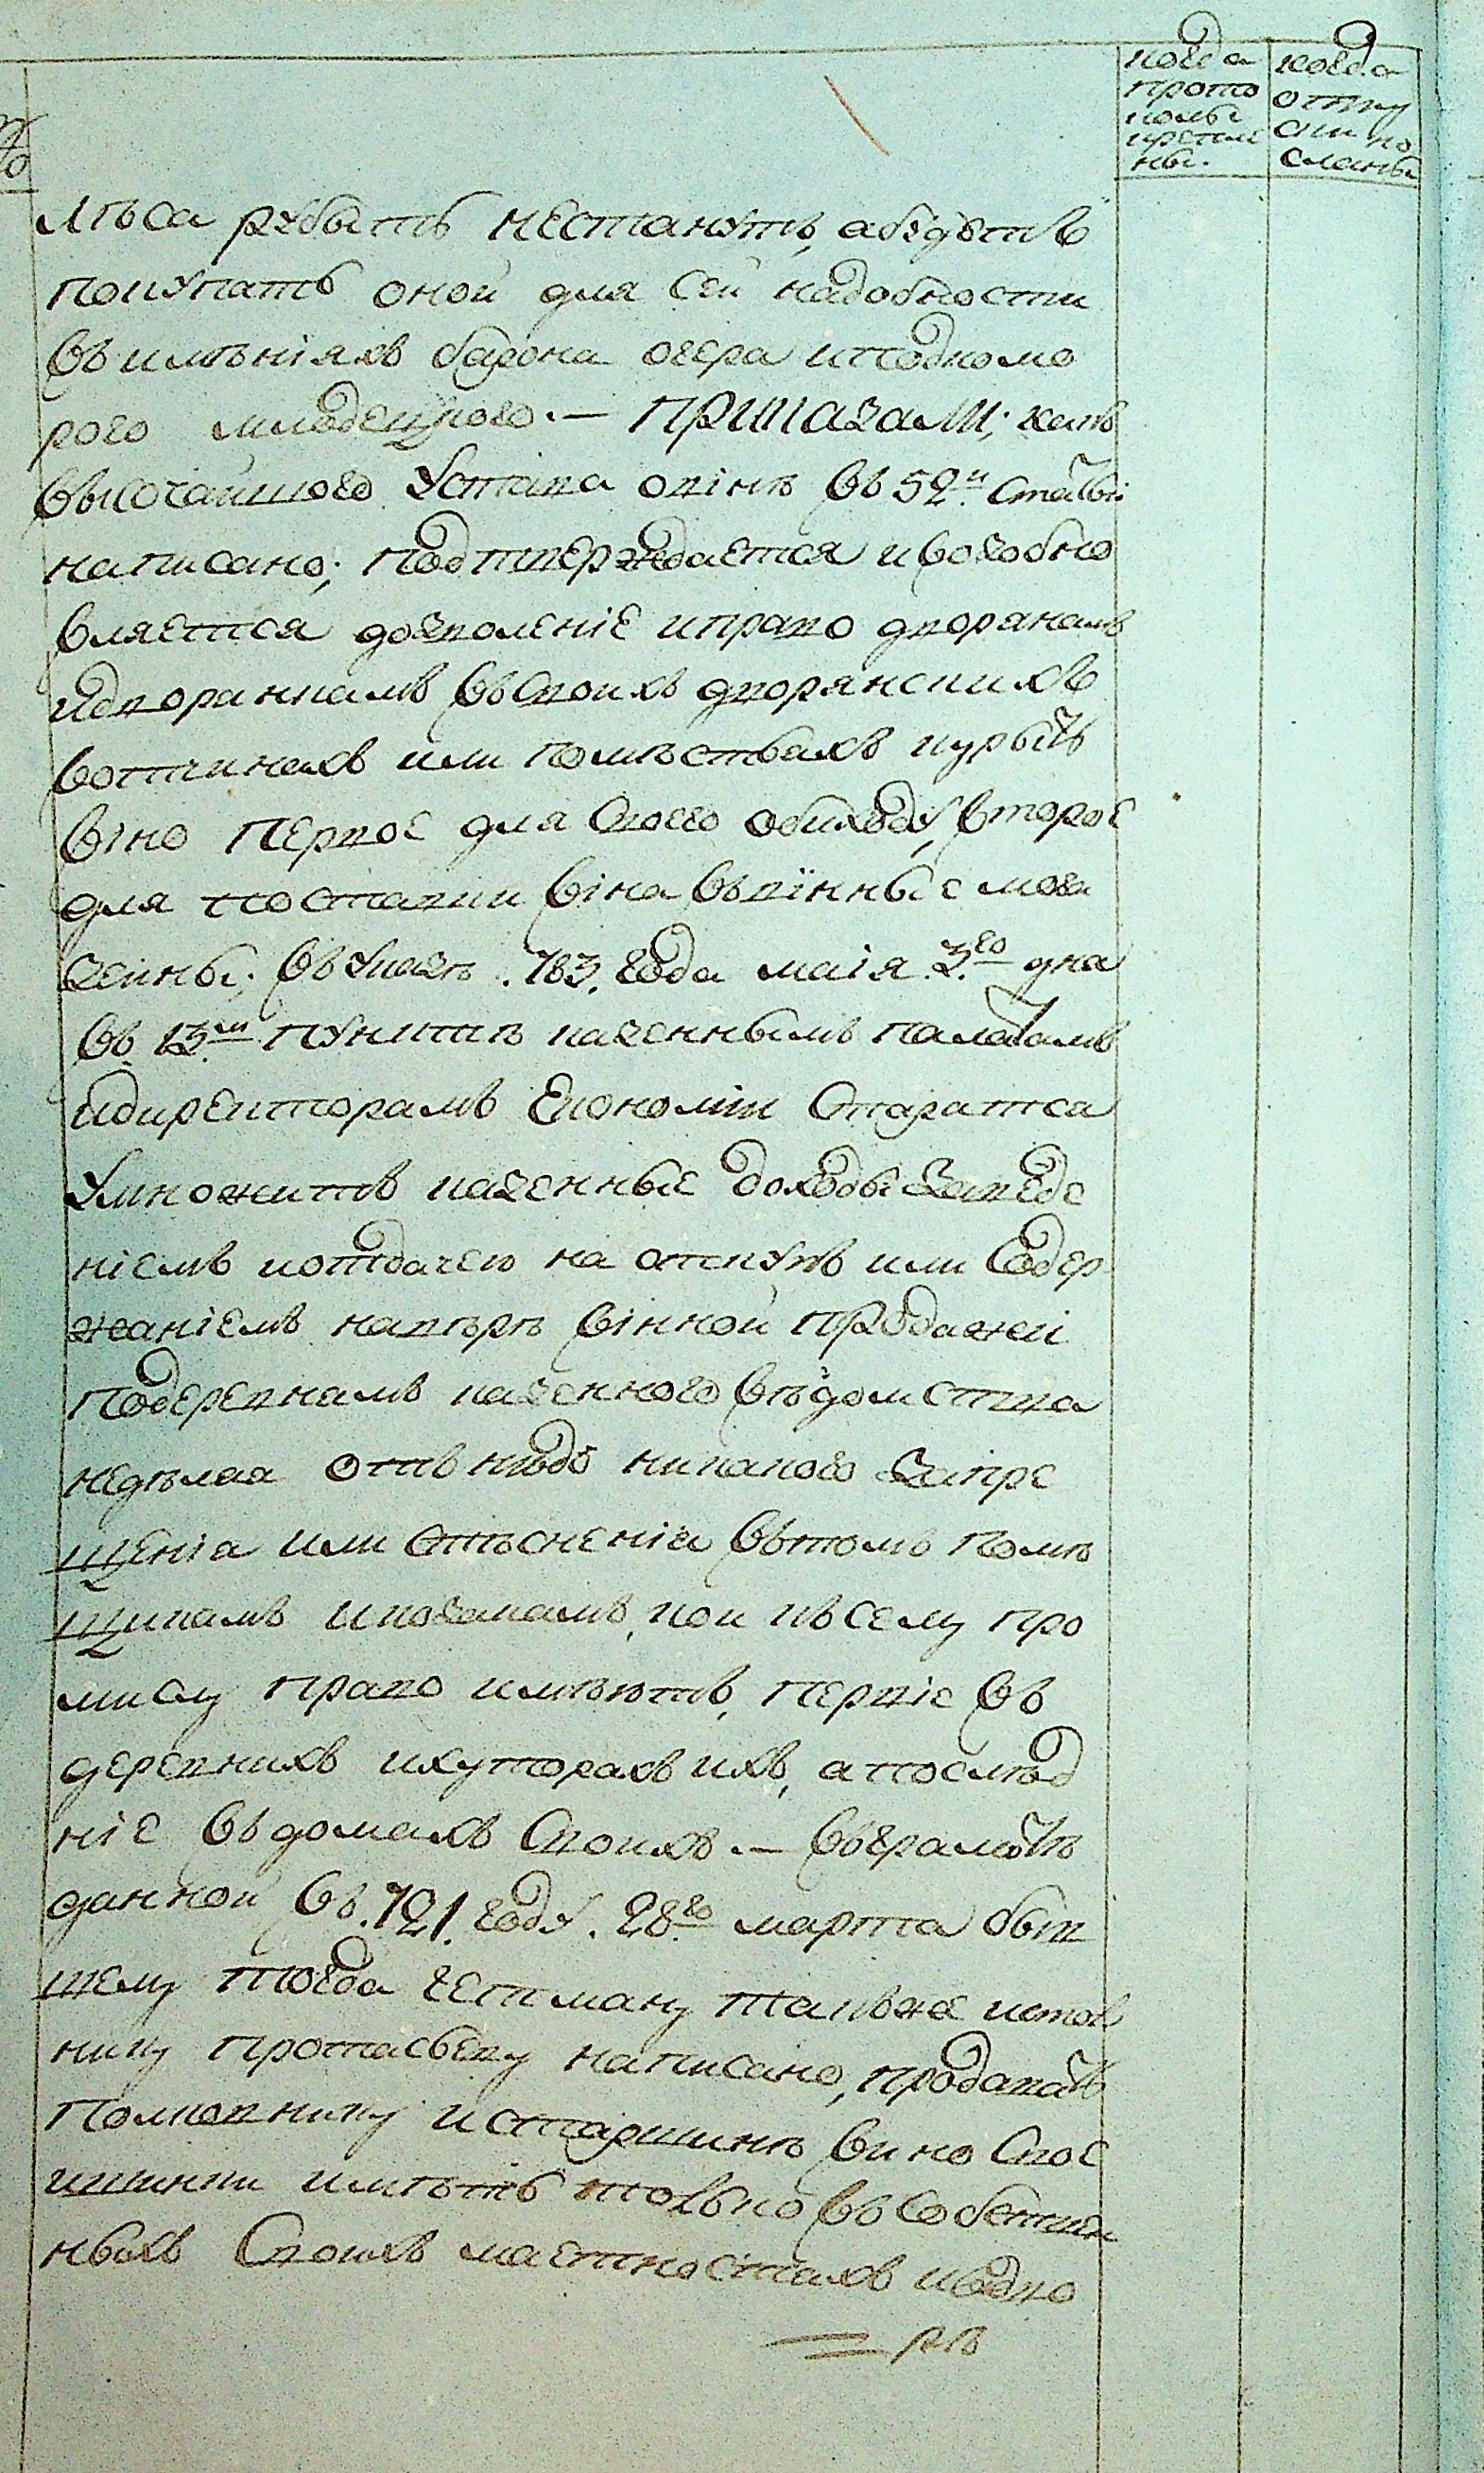 когда
прото
колы
крепле
ны.
когда
отпу
ски по
сланы
лѣса рубить нестанутъ, абудетъ
покупать оной для сей надобности
въ имѣніяхъ барона огера
рого младенцкого. — приказали; какъ
высочайшого Устава овінѣ въ 52й. статьи
написано; подтверждается ивозобно
вляется дозволеніе иправо дворянамъ
идворянкамъ въ своихъ дворянскихъ
вотчинахъ или помѣстьяхъ курить
віно первое для своего обиходу, второе
для поставки віна въвінные мага
зейны; въ Указѣ .783. года маія 3.го дня
въ 13.м пунктѣ казеннымъ палатамъ
идиректорамъ Економіи старатся
умножить казенные доходы заведе
ніемъ иотдачею на откупъ или содер
жаніемъ навѣрѣ вінной продажей
подеревнамъ казенного вѣдомства
недѣлая отнюдь никакого запре
щенія или стѣсненія втомъ помѣ
щикамъ иказакамъ, кои ксему про
мислу право имѣютъ, первіе въ
деревняхъ ихуторахъ ихъ, апослѣд
ніе въдомахъ своихъ. — въграмотѣ
данной въ .721. году. 28.го марта быв
шему тогда гетману такъже
нику протасьеву написано, продавать
полковнику истаршинѣ вино свое
ишинки имѣть только въ собствен
ныхъ своихъ маетностяхъ идво
рѣ